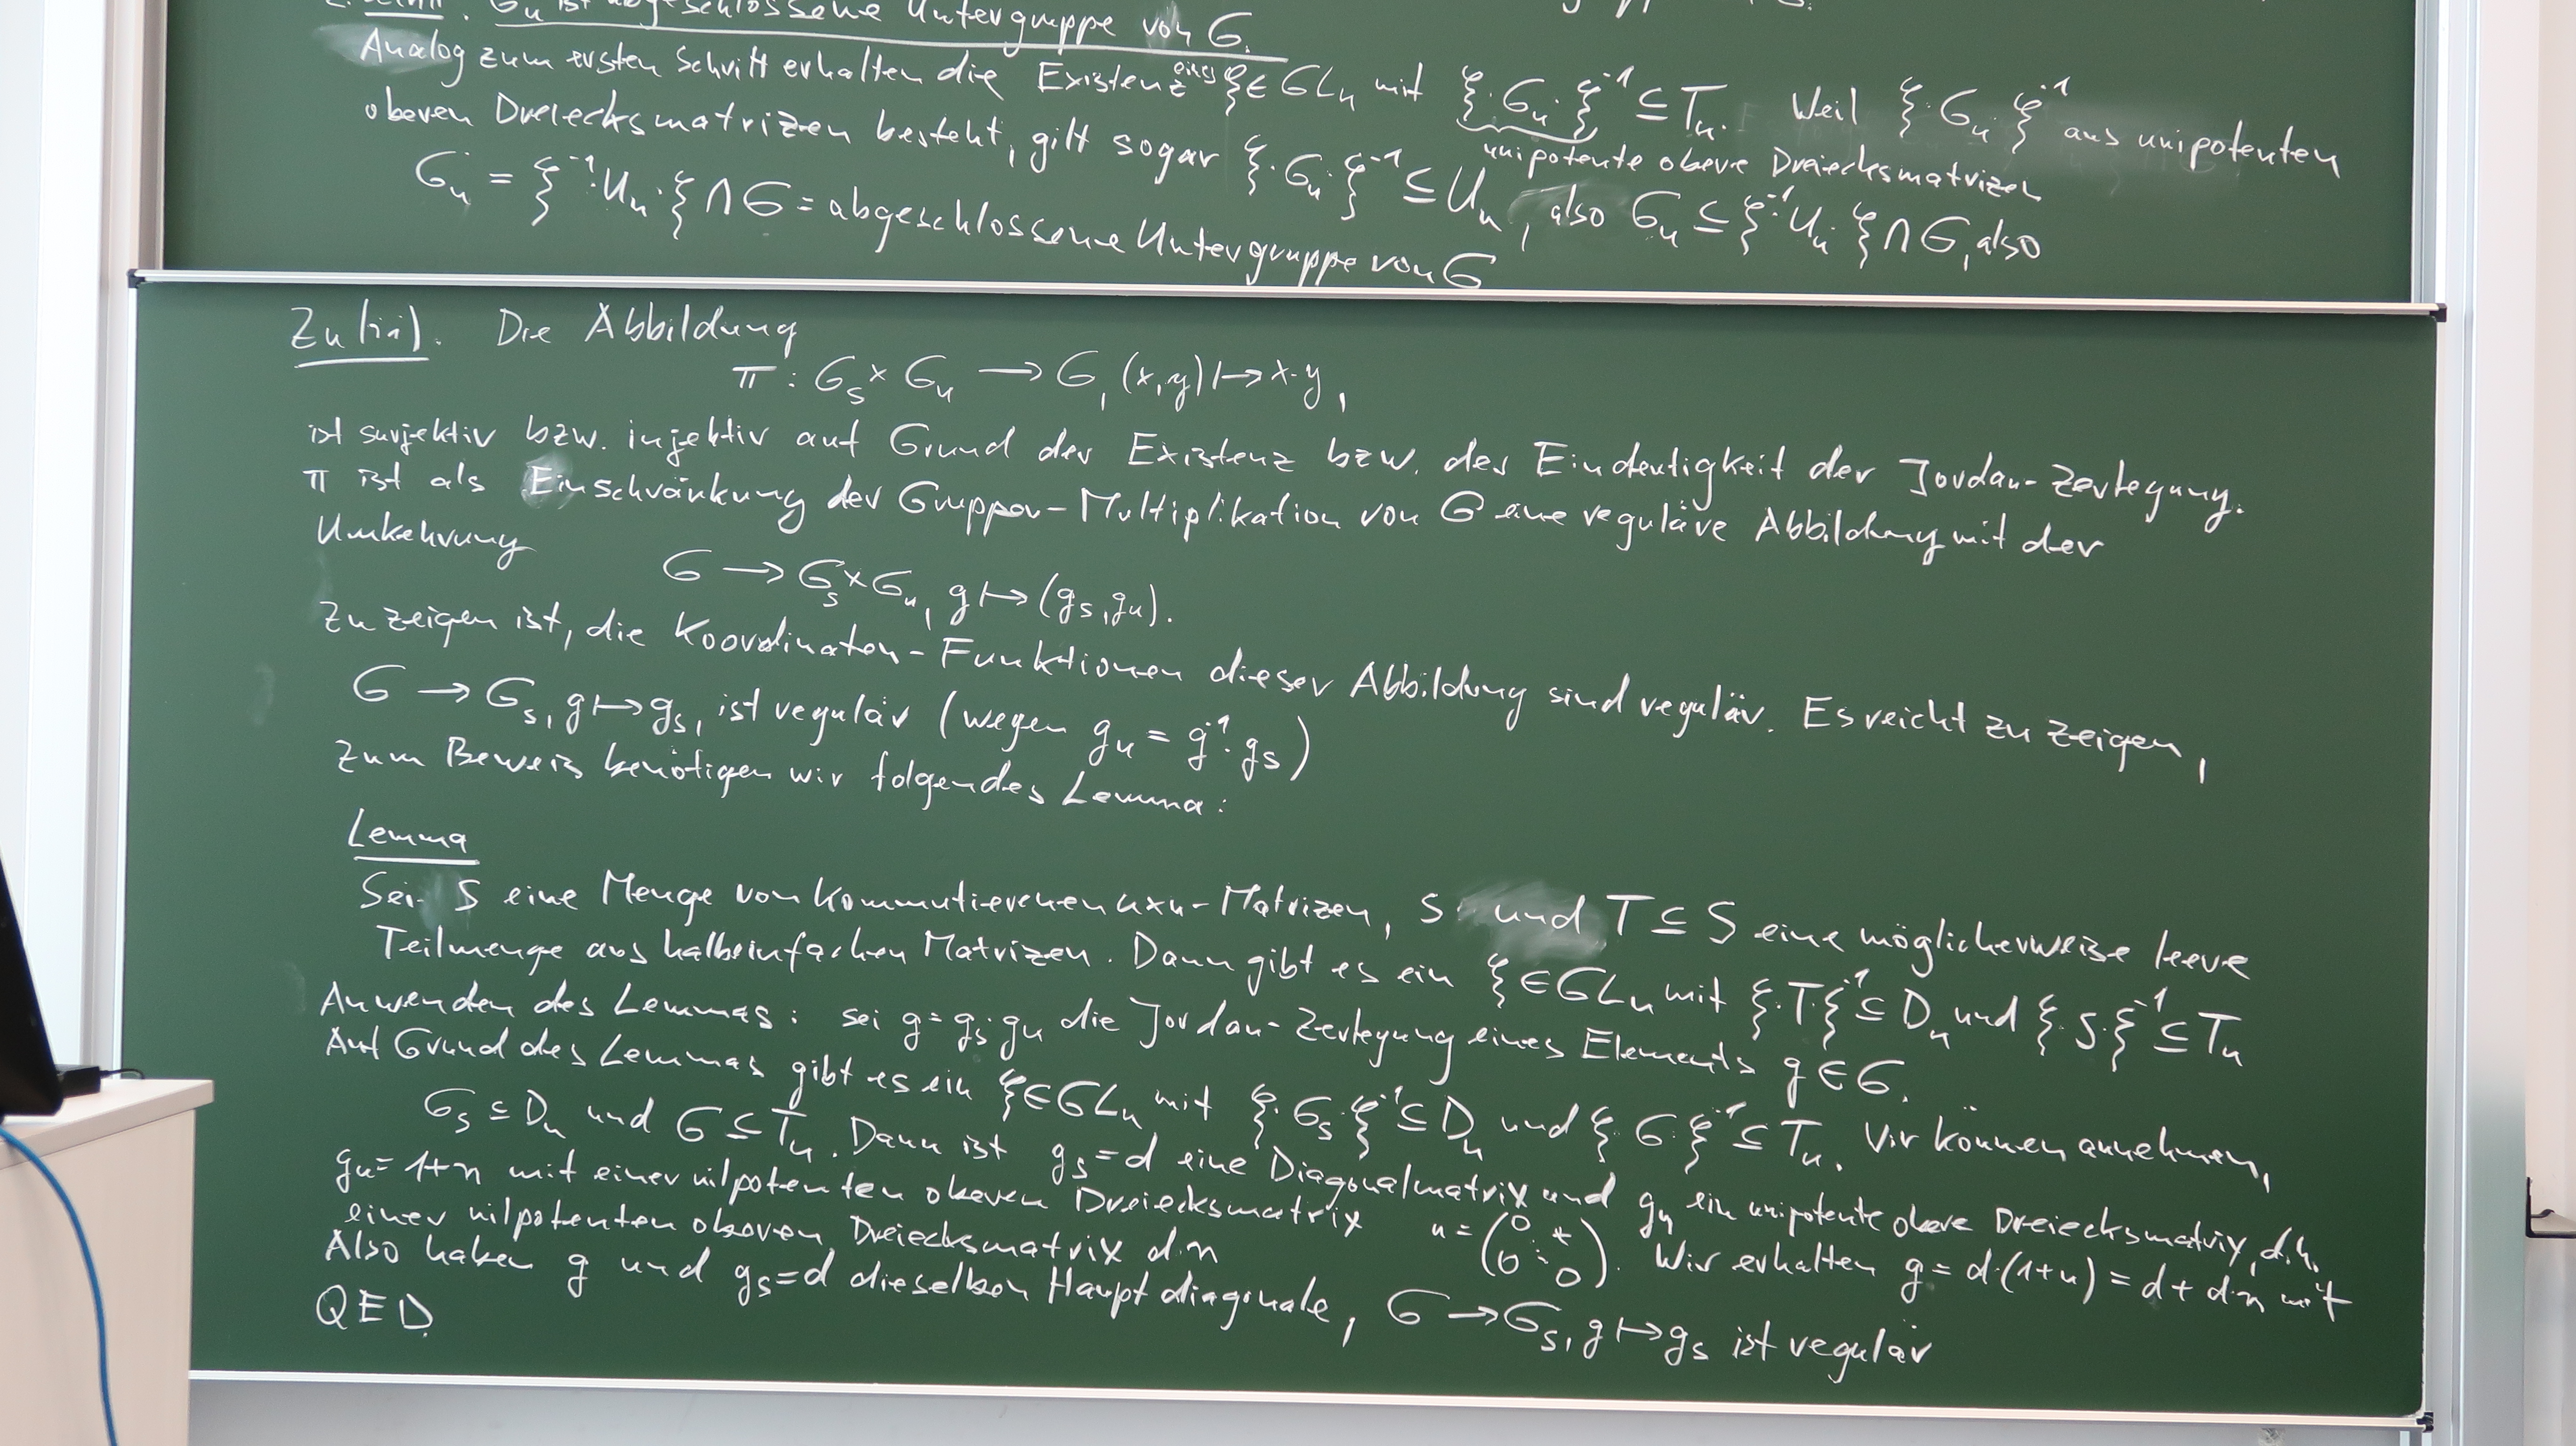 G_u ist abgeschlossene Untergruppe von G.
Analog zum ersten Schritt erhalten die Existenz eines ξ∈GL_n mit ξ·G_u·ξ^{-1} ⊆ T_n. Weil ξ·G_u·ξ^{-1} aus unipotenten
unipotente obere Dreiecksmatrizen
oberen Dreiecksmatrizen besteht, gilt sogar ξ·G_u·ξ^{-1} ⊆ U_n, also G_u ⊆ ξ^{-1}·U_n·ξ ∩ G, also
G_u = ξ^{-1}·U_n·ξ ∩ G = abgeschlossene Untergruppe von G
Zu (iii). Die Abbildung
π: G_s × G_u → G, (x,y) ↦ x·y,
ist surjektiv bzw. injektiv auf Grund der Existenz bzw. der Eindeutigkeit der Jordan-Zerlegung.
π ist als Einschränkung der Gruppen-Multiplikation von G eine reguläre Abbildung mit der
Umkehrung G → G_s × G_u, g ↦ (g_s, g_u).
Zu zeigen ist, die Koordinaten-Funktionen dieser Abbildung sind regulär. Es reicht zu zeigen,
G → G_s, g ↦ g_s, ist regulär (wegen g_u = g^{-1}·g_s)
Zum Beweis benötigen wir folgendes Lemma:
Lemma
Sei S eine Menge von kommutierenen n×n-Matrizen, S und T ⊆ S eine möglicherweise leere
Teilmenge aus halbeinfachen Matrizen. Dann gibt es ein ξ∈GL_n mit ξ·T·ξ^{-1} ⊆ D_n und ξ·S·ξ^{-1} ⊆ T_n
Anwenden des Lemmas: sei g = g_s·g_u die Jordan-Zerlegung eines Elements g∈G.
Auf Grund des Lemmas gibt es ein ξ∈GL_n mit ξ·G_s·ξ^{-1} ⊆ D_n und ξ·G·ξ^{-1} ⊆ T_n. Wir können annehmen,
G_s ⊆ D_n und G ⊆ T_n. Dann ist g_s = d eine Diagonalmatrix und g_u ein unipotente obere Dreiecksmatrix, d.h.
g_u = 1+n mit einer nilpotenten oberen Dreiecksmatrix n = (0 * 0 0). Wir erhalten g = d·(1+n) = d + d·n mit
einer nilpotenten oberen Dreiecksmatrix d·n
Also haben g und g_s = d dieselben Hauptdiagonale, G → G_s, g ↦ g_s ist regulär
QED